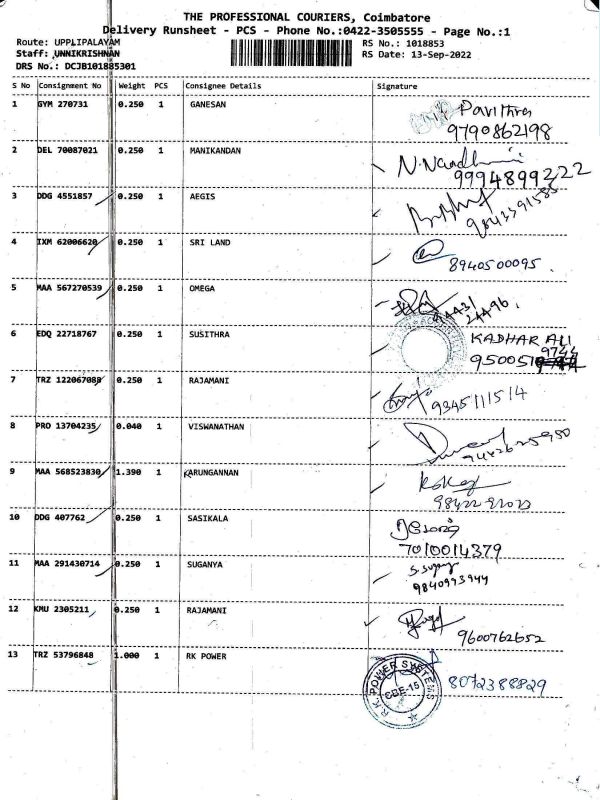 THE PROFESSIONAL COURIERS, Coimbatore
Delivery Runsheet - PCS - Phone No.:0422-3505555 - Page No.:1
Route: UPPLIPALAYAM
Staff: UNNIKRISHNAN
DRS No.: DCJB101885301
RS No.: 1018853
RS Date: 13-Sep-2022
S No Consignment No Weight PCS Consignee Details Signature
1 GYM 270731 0.250 1 GANESAN Pavithra
9790862198
2 DEL 70087021 0.250 1 MANIKANDAN
9994899222
3 DDG 4551857 0.250 1 AEGIS
9843391585
4 IXM 62006620 0.250 1 SRI LAND
8940500095.
5 MAA 567270539 0.250 1 OMEGA
94431
24496.
6 EDQ 22718767 0.250 1 SUSITHRA KADHAR ALI
9744
950051
7 TRZ 122067088 0.250 1 RAJAMANI
9345111514
8 PRO 13704235 0.040 1 VISWANATHAN
9 MAA 568523830 1.390 1 KARUNGANNAN
10 DDG 407762 0.250 1 SASIKALA
7010014379
11 MAA 291430714 0.250 1 SUGANYA
9840993944
12 KMU 2305211 0.250 1 RAJAMANI
9600762652
13 TRZ 53796848 1.000 1 RK POWER
R.K. POWER SYSTEMS
CBE-15
8072388829